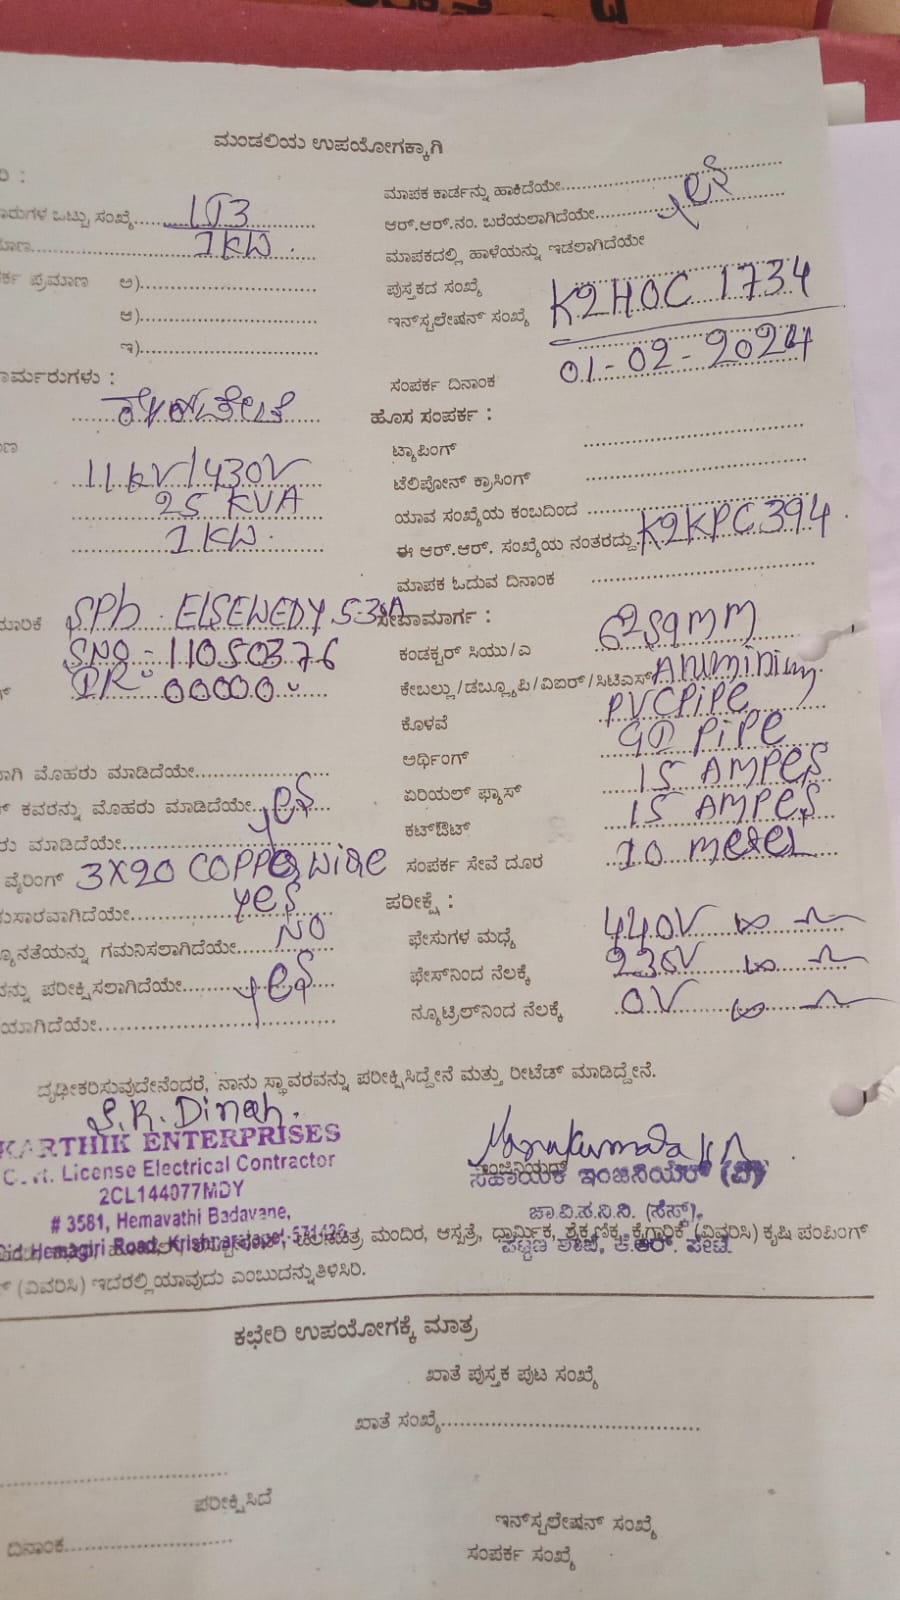 ಮಂಡಲಿಯ ಉಪಯೋಗಕ್ಕಾಗಿ
ರಿ :
ಮಾಪಕ ಕಾರ್ಡನ್ನು ಹಾಕಿದೆಯೇ
ಾರುಗಳ ಒಟ್ಟು ಸಂಖ್ಯೆ LT3
ಆರ್.ಆರ್.ನಂ. ಬರೆಯಲಾಗಿದೆಯೇ yes
ಮಾಣ 1KW.
ಮಾಪಕದಲ್ಲಿ ಹಾಳೆಯನ್ನು ಇಡಲಾಗಿದೆಯೇ
ರ್ಕ ಪ್ರಮಾಣ ಅ)
ಪುಸ್ತಕದ ಸಂಖ್ಯೆ
ಆ)
ಇನ್‌ಸ್ಟಲೇಷನ್ ಸಂಖ್ಯೆ K2HOC 1734
ಇ)
ಸಂಪರ್ಕ ದಿನಾಂಕ 01-02-2024
ಾರ್ಮರುಗಳು :
ಹೊಸ ಸಂಪರ್ಕ :
ಟ್ಯಾಪಿಂಗ್
11KV/430V
ಟೆಲಿಪೋನ್ ಕ್ರಾಸಿಂಗ್
25 KVA
ಯಾವ ಸಂಖ್ಯೆಯ ಕಂಬದಿಂದ
1KW.
ಈ ಆರ್.ಆರ್. ಸಂಖ್ಯೆಯ ನಂತರದ್ದು K2KPC394.
ಮಾಪಕ ಓದುವ ದಿನಾಂಕ
SPh. ELSEWEDY 5-30A
ಸೇವಾಮಾರ್ಗ :
SNO - 11050376
ಕಂಡಕ್ಟರ್ ಸಿಯು/ಎ 6.2sqmm
IR: 00000.
ಕೇಬಲ್ಲು/ಡಬ್ಲ್ಯೂಪಿ/ವಿಐರ್/ಸಿಟಿಎಸ್ Aluminium
ಕೊಳವೆ PVC PiPe
ಅರ್ಥಿಂಗ್ GI PiPe
ಾಗಿ ಮೊಹರು ಮಾಡಿದೆಯೇ
ಏರಿಯಲ್ ಫ್ಯೂಸ್ 15 AMPes
ಕವರನ್ನು ಮೊಹರು ಮಾಡಿದೆಯೇ yes
ಕಟ್‌ಔಟ್ 15 AMPes
ರು ಮಾಡಿದೆಯೇ
ವೈರಿಂಗ್ 3X20 COPPER wire
ಸಂಪರ್ಕ ಸೇವೆ ದೂರ 10 meter
ುಸಾರವಾಗಿದೆಯೇ yes
ಪರೀಕ್ಷೆ :
್ಯೂನತೆಯನ್ನು ಗಮನಿಸಲಾಗಿದೆಯೇ NO
ಫೇಸುಗಳ ಮಧ್ಯೆ 440V
ವನ್ನು ಪರೀಕ್ಷಿಸಲಾಗಿದೆಯೇ yes
ಫೇಸ್‌ನಿಂದ ನೆಲಕ್ಕೆ 230V
ಯಾಗಿದೆಯೇ
ನ್ಯೂಟ್ರಲ್‌ನಿಂದ ನೆಲಕ್ಕೆ 0V
ದೃಢೀಕರಿಸುವುದೇನೆಂದರೆ, ನಾನು ಸ್ಥಾವರವನ್ನು ಪರೀಕ್ಷಿಸಿದ್ದೇನೆ ಮತ್ತು ರೀಟೆಡ್ ಮಾಡಿದ್ದೇನೆ.
S.R. Dinesh.
KARTHIK ENTERPRISES
License Electrical Contractor
2CL144077MDY
# 3581, Hemavathi Badavane,
Old Hemagiri Road, Krishnarajapet-571426
ಸಹಾಯಕ ಇಂಜಿನಿಯರ್ (ವಿ)
ಚಾ.ವಿ.ಸ.ನಿ.ನಿ. (ಸೆಸ್ಕ್),
ಪಟ್ಟಣ ಶಾಖೆ, ಕೆ.ಆರ್. ಪೇಟೆ.
ಮಂದಿರ, ಆಸ್ಪತ್ರೆ, ಧಾರ್ಮಿಕ, ಶೈಕ್ಷಣಿಕ, ಕೈಗಾರಿಕೆ (ವಿವರಿಸಿ) ಕೃಷಿ ಪಂಪಿಂಗ್
(ವಿವರಿಸಿ) ಇದರಲ್ಲಿ ಯಾವುದು ಎಂಬುದನ್ನು ತಿಳಿಸಿರಿ.
ಕಛೇರಿ ಉಪಯೋಗಕ್ಕೆ ಮಾತ್ರ
ಖಾತೆ ಪುಸ್ತಕ ಪುಟ ಸಂಖ್ಯೆ
ಖಾತೆ ಸಂಖ್ಯೆ
ಪರೀಕ್ಷಿಸಿದೆ
ದಿನಾಂಕ
ಇನ್‌ಸ್ಟಲೇಷನ್ ಸಂಖ್ಯೆ
ಸಂಪರ್ಕ ಸಂಖ್ಯೆ